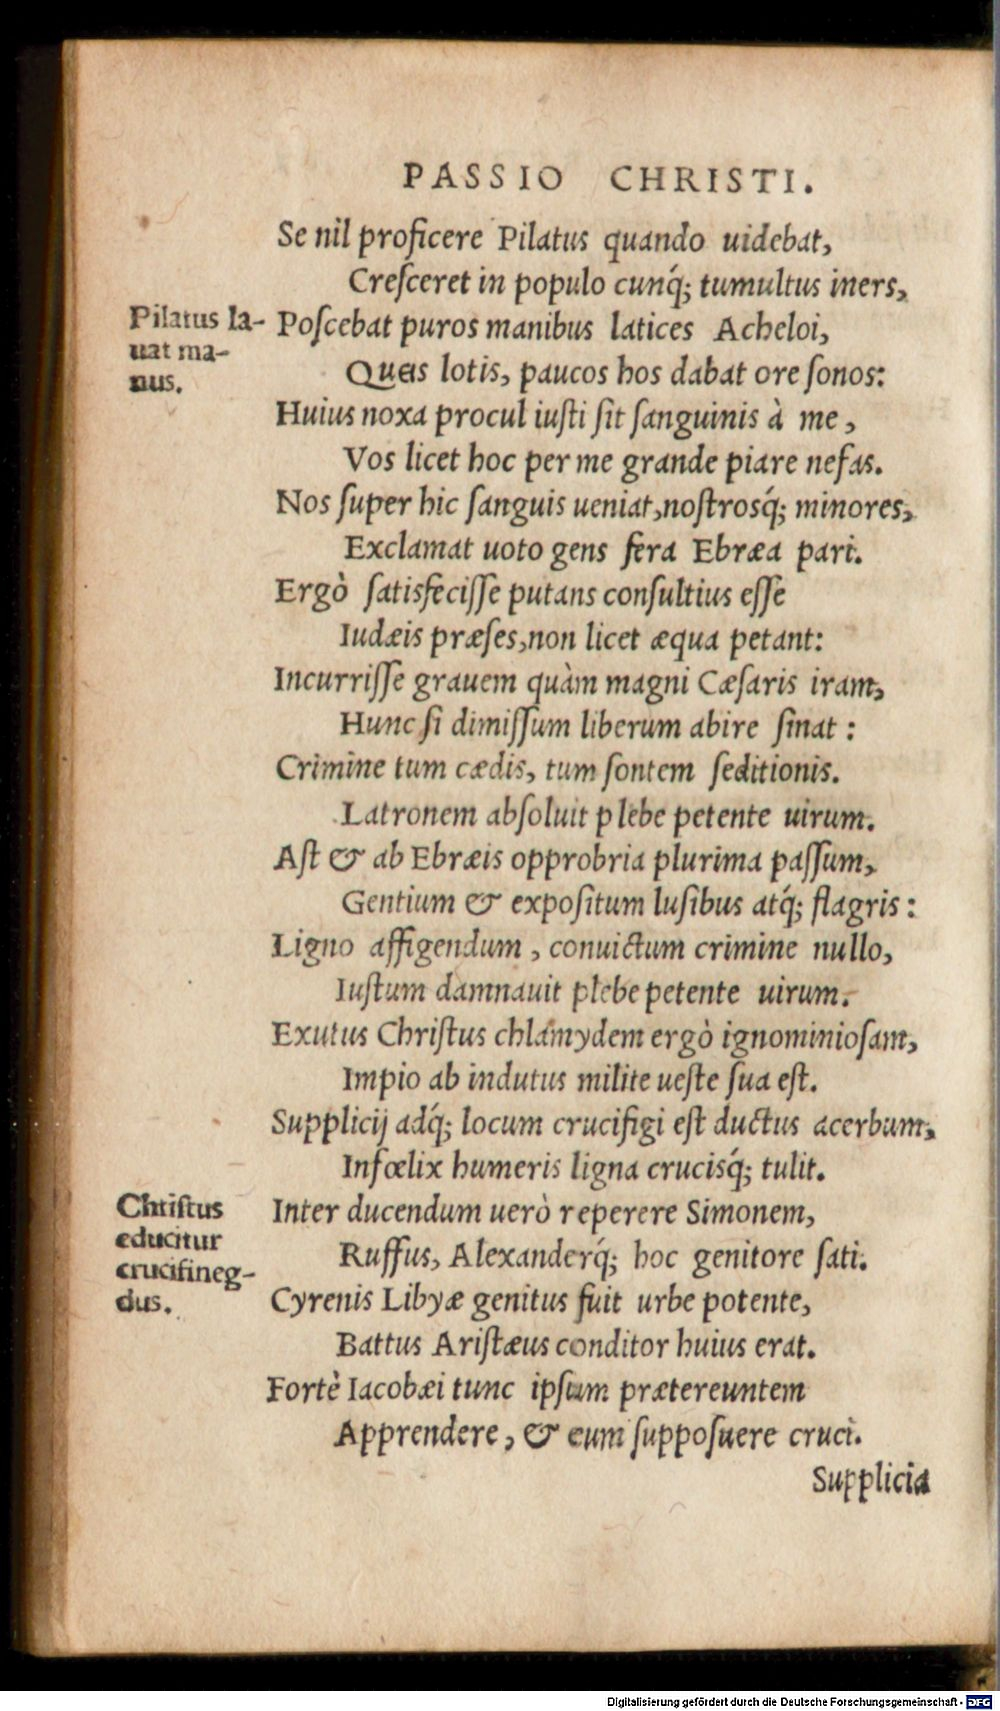 PASSIO CHRISTI.
Se nil proficere Pilatus quando uidebat,
Creſceret in populo cunq́; tumultus iners,
Pilatus la-
uat ma-
nus.
Poſcebat puros manibus latices Acheloi,
Queis lotis, paucos hos dabat ore ſonos:
Huius noxa procul iuſti ſit ſanguinis à me,
Vos licet hoc per me grande piare nefas.
Nos ſuper hic ſanguis ueniat, noſtrosq́; minores,
Exclamat uoto gens fera Ebræa pari.
Ergò ſatisfeciſſe putans conſultius eſſe
Iudæis præſes, non licet æqua petant:
Incurriſſe grauem quàm magni Cæſaris iram,
Hunc ſi dimiſſum liberum abire ſinat:
Crimine tum cædis, tum ſontem ſeditionis.
Latronem abſoluit plebe petente uirum.
Aſt & ab Ebræis opprobria plurima paſſum,
Gentium & expoſitum luſibus atq́; flagris:
Ligno affigendum, conuictum crimine nullo,
Iuſtum damnauit plebe petente uirum.
Exutus Chriſtus chlamydem ergò ignominioſam,
Impio ab indutus milite ueſte ſua eſt.
Supplicij adq́; locum crucifigi eſt ductus acerbum,
Infœlix humeris ligna crucisq́; tulit.
Chriſtus
educitur
crucifineg-
dus.
Inter ducendum uerò reperere Simonem,
Ruffus, Alexanderq́; hoc genitore ſati.
Cyrenis Libyæ genitus fuit urbe potente,
Battus Ariſtæus conditor huius erat.
Fortè Iacobæi tunc ipſum prætereuntem
Apprendere, & eum ſuppoſuere cruci.
Supplicia
Digitalisierung gefördert durch die Deutsche Forschungsgemeinschaft - DFG